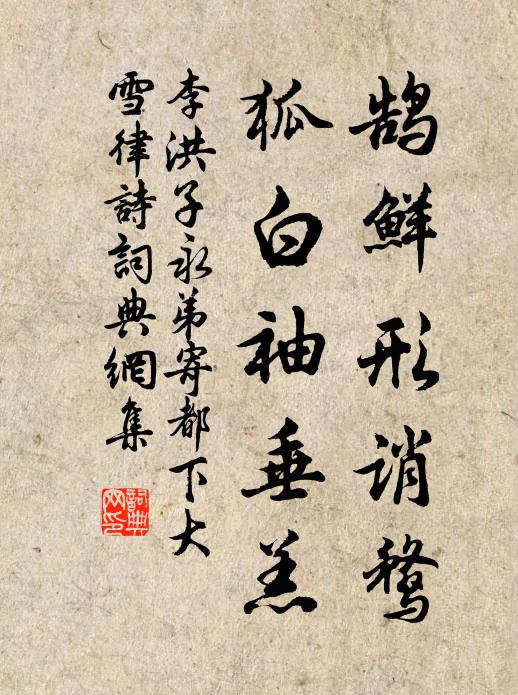 鹄鮮形誚鶩
狐白袖垂羔
李洪子永弟寄都下大
雪律詩詞典網集
詞典
网印